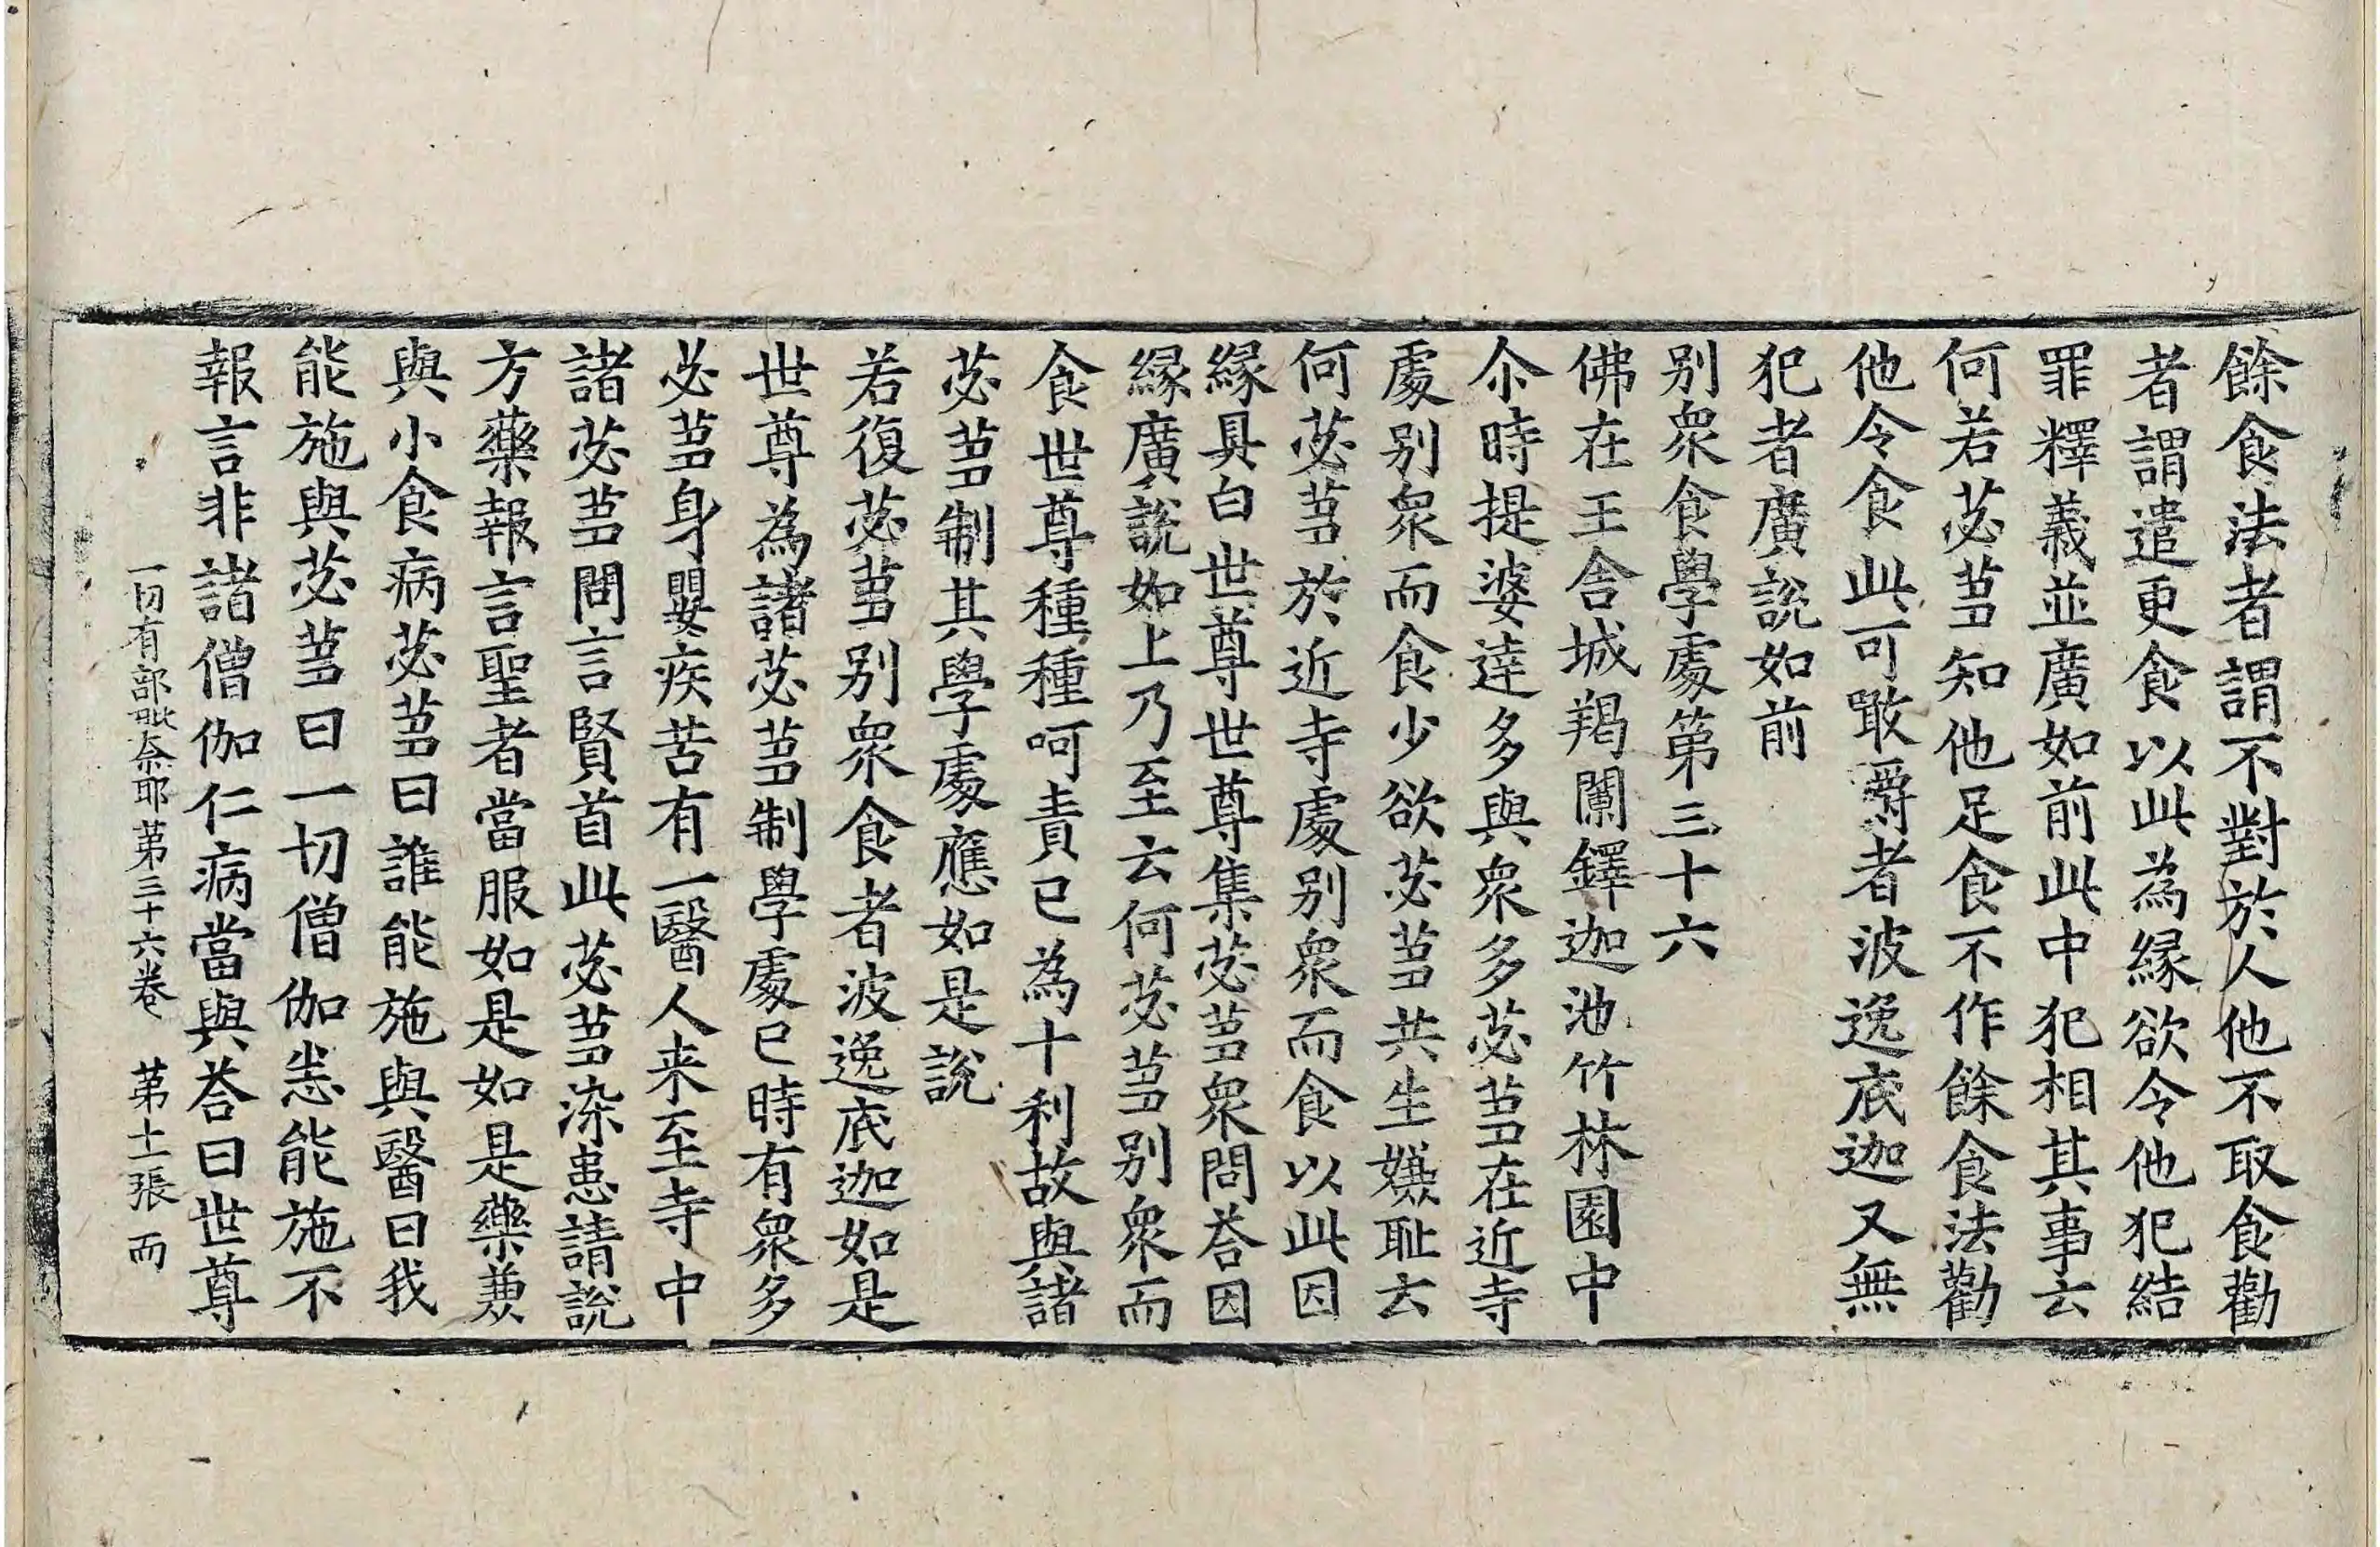 餘食法者謂不對於人他不取食勸
者謂遣更食以此為緣欲令他犯結
罪釋義並廣如前此中犯相其事云
何若苾芻知他足食不作餘食法勸
他令食此可噉嚼者波逸底迦又無
犯者廣說如前
别衆食學處第三十六
佛在王舍城羯闌鐸迦池竹林園中
尒時提婆達多與衆多苾芻在近寺
處别衆而食少欲苾芻共生嫌耻云
何苾芻於近寺處别衆而食以此因
緣具白世尊世尊集苾芻衆問荅因
緣廣說如上乃至云何苾芻别衆而
食世尊種種呵責已為十利故與諸
苾芻制其學處應如是說
若復苾芻别衆食者波逸底迦如是
世尊為諸苾芻制學處已時有衆多
苾芻身嬰疾苦有一醫人来至寺中
諸苾芻問言賢首此苾芻染患請說
方藥報言聖者當服如是如是藥兼
與小食病苾芻曰誰能施與醫曰我
能施與苾芻曰一切僧伽恙能施不
報言非諸僧伽仁病當與荅曰世尊
一切有部毗奈耶第三十六卷 第十一張 而